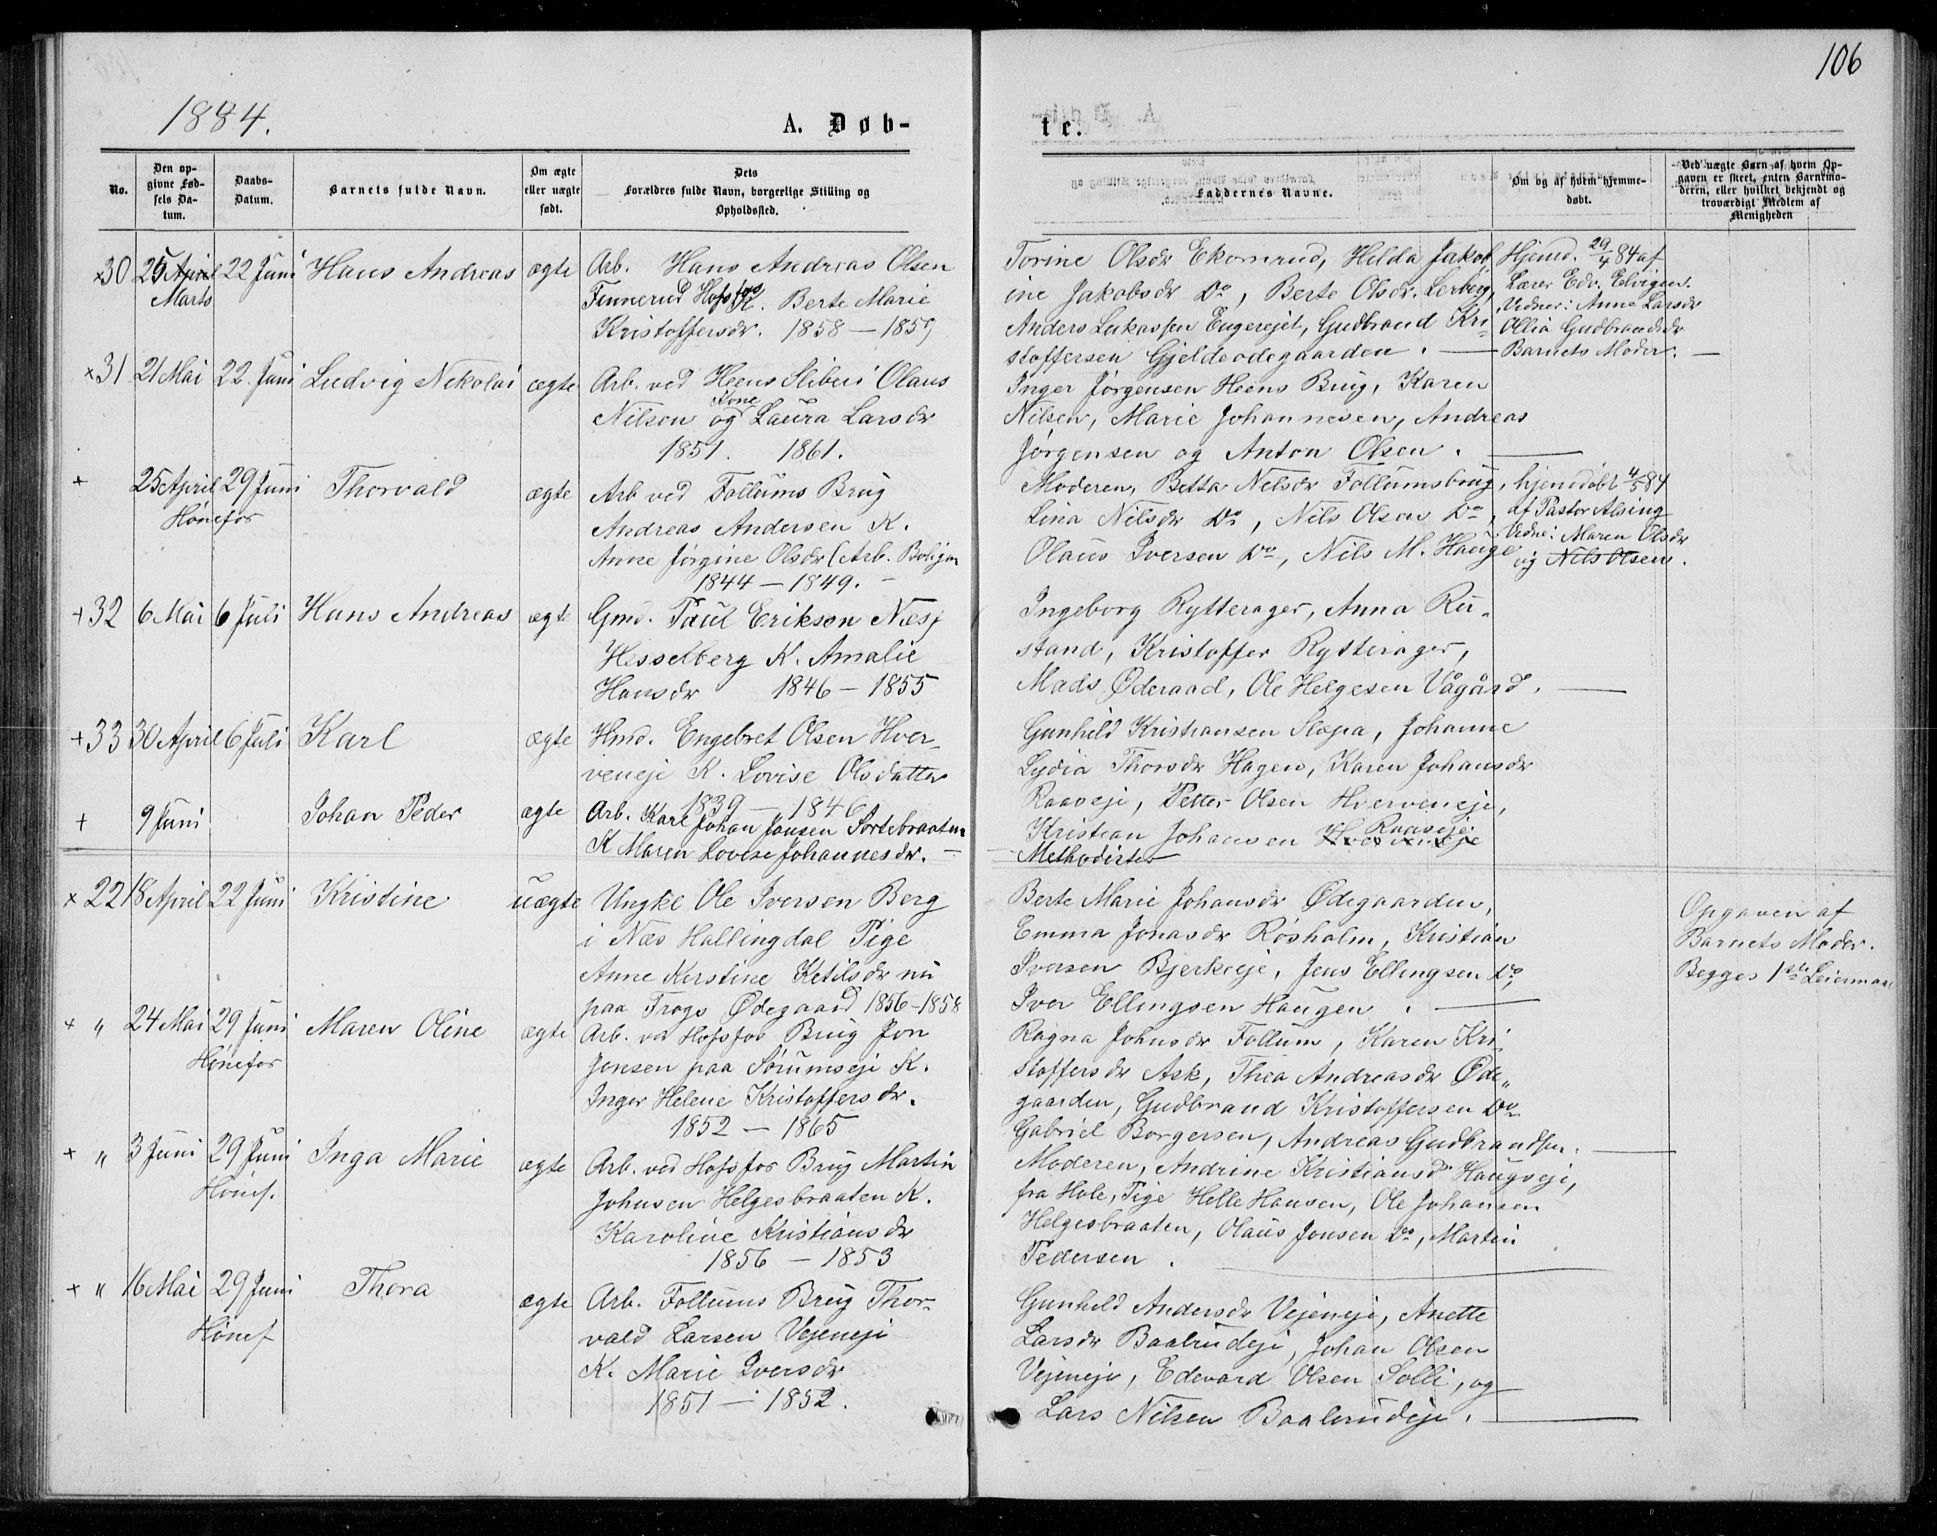 106
1884.
A. Døb-
te.
No.
Den op-
givne Fød-
sels Da-
tum.
Daabs-
Datum.
Barnets fulde Navn.
Om ægte
eller uægte
født.
Dets
Forældres fulde Navn, borgerlige Stilling og
Opholdssted.
Faddernes Navne.
Om og af hvem hjemme-
døbt.
Ved uægte Børn af hvem Op-
gaven er skeet, enten Barnemo-
deren, eller hvilket bekjendt og
troværdigt Medlem af
Menigheden
×30 25 April 22 Juni Hans Andreas ægte Arb. Hans Andreas Olsen
Marts Finnerud Hofsfos K. Berte Marie
Kristoffersdr. 1858 — 1859
Torine Olsdr Ekornrud, Hilda Jakob
ine Jakobsdr Do, Berte Olsdr. Lerberg,
Anders Lukassen Engerejet, Gudbrand Kri-
stoffersen Gjeldeodegaarden. —
Hjemd. 29/4 84 af
Lærer Edv. Elvigen.
Vidner: Anne Larsdr
Ollia Gudbrandsdr
Barnets Moder. —
×31 21 Mai 22. Juni Ludvig Nikolai ægte Arb. ved Heens Sliberi Olaus
Nilsen og Kone Laura Larsdr
1851. 1861.
Inger Jørgensen Heens Brug, Karen
Nilsen, Marie Johannesen, Andreas
Jørgensen og Anton Olsen. —
+ 25 April 29 Juni Thorvald ægte Arb ved Follums Brug
Hønefos Andreas Andersen K.
Anne Jørgine Olsdr (Arb. Boligen
1844 — 1849. —
Moderen, Betta Nilsdr Follumsbrug,
Lina Nilsdr Do, Nils Olsen Do,
Olaus Iversen Do, Nils M. Hauge
hjemdøbt 4/5 84
af Pastor Alsing
Vidne: Maren Olsdr
og Nils Olsen.
+32 6 Mai 6 Juli Hans Andreas ægte Gmd. Paul Erikson Næsj
Hesselberg K. Amalie
Hansdr 1846 — 1855
Ingeborg Rytterager, Anna Ru-
stand, Kristoffer Rytterager,
Mads Øderaad, Ole Helgesen Vågård. —
+33 30 April 6 Juli Karl ægte Hmd. Engebret Olsen Hver-
veneje K. Lovise Olsdatter
1839 — 1846
Gunhild Kristiansen Slopia, Johanne
Lydia Thorsdr Hagen, Karen Johansdr
Raaveje, Petter Olsen Hverveneje,
Kristian Johansen Hverveneje Raaveje
+ 9 Juni Johan Peder ægte Arb. Karl Johan Jansen Sortebraaten
K Maren Lovise Johannesdr. —
Methodister
×22 18 April 22 Juni Kristine uægte Ungke Ole Iversen Berg
i Næs Hallingdal Pige
Anne Kerstine Ketilsdr nu
paa Trogs Ødegaard 1856-1858
Berte Marie Johansdr Ødegaarden,
Emma Jonasdr Rosholm, Kristian
Iversen Bjerkeeje, Jens Ellingsen Do,
Iver Ellingsen Haugen. —
Opgaven af
Barnets Moder.
Begges 1ste Leiermaal
× " 24 Mai 29 Juni Maren Oline ægte Arb. ved Hofsfos Brug Jon
Hønefos Jonsen paa Sørumseje K.
Inger Helene Kristoffersdr.
1852 — 1865
Ragna Johnsdr Follum, Karen Kri
stoffersdr Ask, Thea Andreasdr Øde-
gaarden, Gudbrand Kristoffersen Do
Gabriel Borgersen, Andreas Gudbrandsen. —
+ " 3 Juni 29 Juni Inga Marie ægte Arb. ved Hofsfos Brug Martin
Hønef. Johnsen Helgesbraaten K.
Karoline Kristiansdr
1856 — 1853
Moderen, Andrine Kristiansd Haugseje,
fra Hole, Pige Helle Hansen, Ole Johansen
Helgesbraaten, Olaus Jonsen Do, Martin
Pedersen. —
+ " 16 Mai 29 Juni Thora ægte Arb. Follums Brug Thor-
Hønef vald Larsen Vejeneje
K. Marie Iversdr
1851 — 1852.
Gunhild Andersdr Vejeneje, Anette
Larsdr Baalrudeje, Johan Olsen
Vejeneje, Edevard Olsen Solli, og
Lars Nilsen Baalrudeje. —